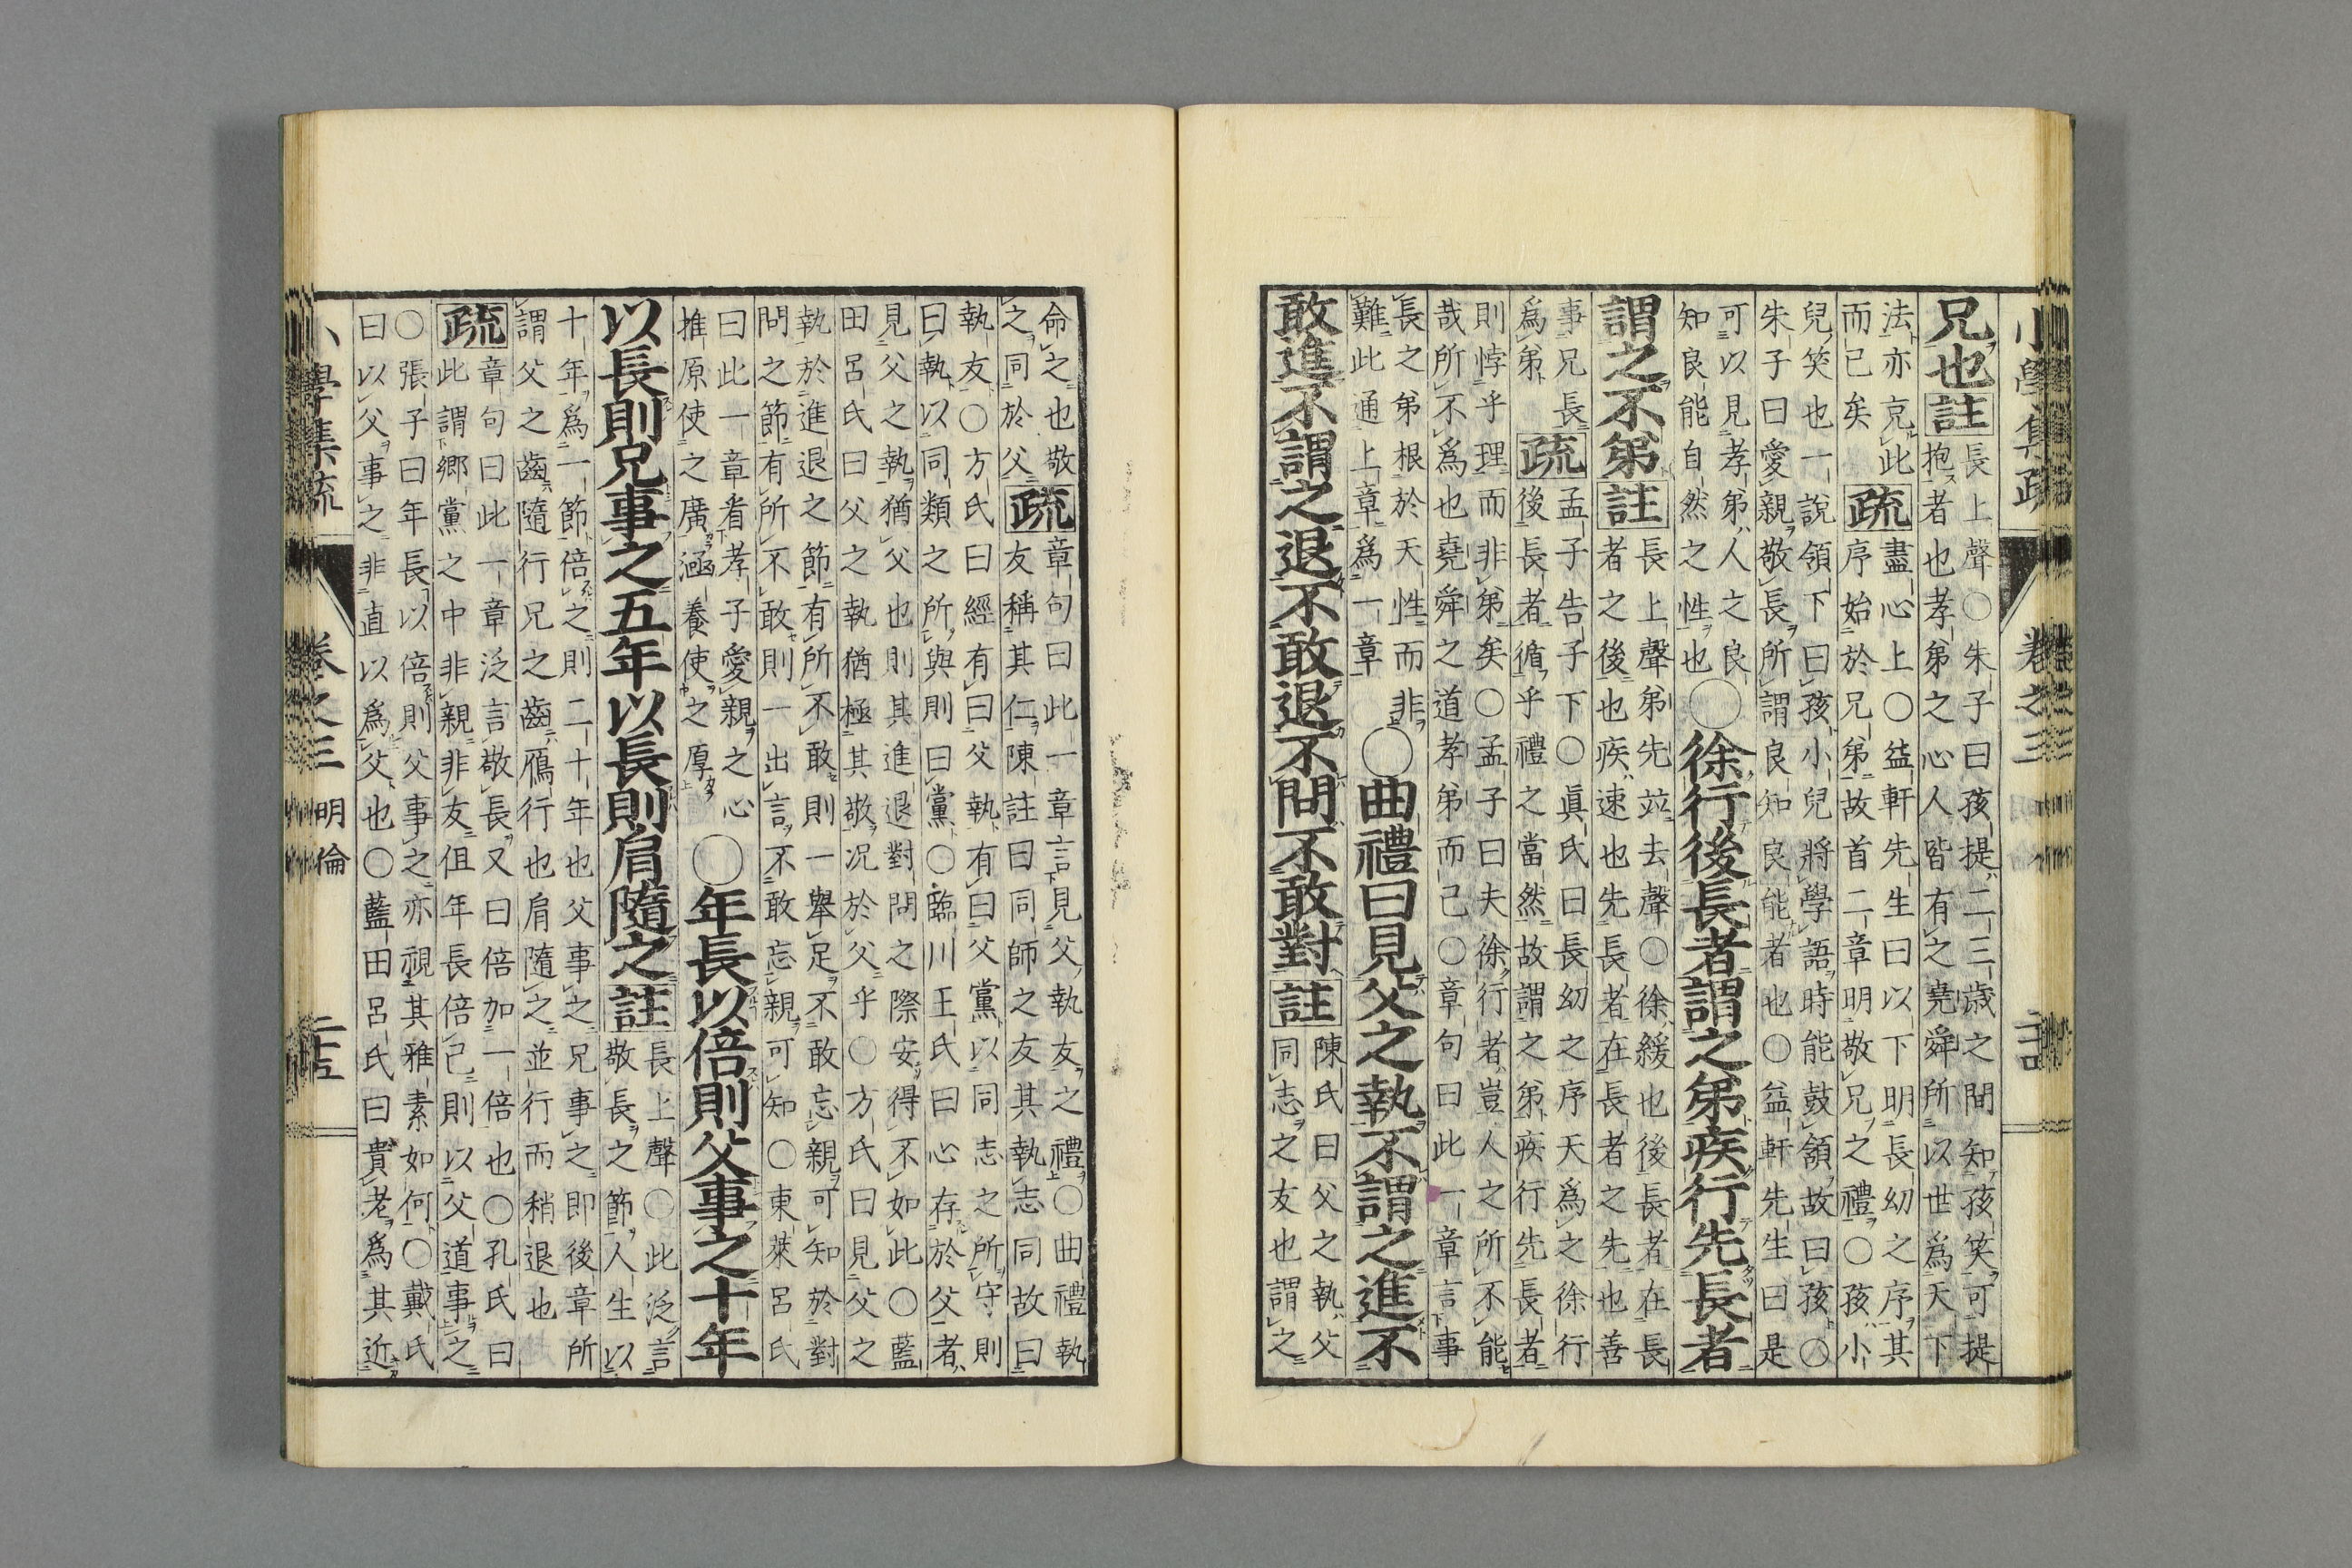 兄也註長上聲○朱子曰孩提二三歲之間知孩笑可提
抱者也孝弟之心人皆有之堯舜所以世爲天下
法亦克此疏盡心上○益軒先生曰以下明長幼之序其
而已矣疏序始於兄弟故首二章明敬兄之禮○孩小
兒笑也一說領下曰孩小兒將學語時能鼓頷故曰孩○
朱子曰愛親敬長所謂良知良能者也○益軒先生曰是
可以見孝弟人之良
知良能自然之性也○徐行後長者謂之弟疾行先長者
謂之不弟註長上聲弟先竝去聲○徐緩也後長者在長
者之後也疾速也先長者在長者之先也善
事兄長
爲弟疏孟子告子下○眞氏曰長幼之序天爲之徐行
後長者循乎禮之當然故謂之弟疾行先長者
則悖乎理而非弟矣○孟子曰夫徐行者豈人之所不能
哉所不爲也堯舜之道孝弟而已○章句曰此一章言事
長之弟根於天性而非
難此通上章爲一章○曲禮曰見父之執不謂之進不
敢進不謂之退不敢退不問不敢對註陳氏曰父之執父
同志之友也謂之
小學集疏　卷之三
命之也敬
之同於父疏章句曰此一章言見父執友之禮○曲禮執
友稱其仁陳註曰同師之友其執志同故曰
執友○方氏曰經有曰父執有曰父黨以同志之所守則
曰執以同類之所與則曰黨○臨川王氏曰心存於父者
見父之執猶父也則其進退對問之際安得不如此○藍
田呂氏曰父之執猶極其敬况於父乎○方氏曰見父之
執於進退之節有所不敢則一舉足不敢忘親可知於對
問之節有所不敢則一出言不敢忘親可知○東萊呂氏
曰此一章看孝子愛親之心
推原使之廣涵養使之厚○年長以倍則父事之十年
以長則兄事之五年以長則肩隨之註長上聲○此泛言
敬長之節人生以
十年爲一節倍之則二十年也父事之兄事之即後章所
謂父之齒隨行兄之齒鴈行也肩隨之並行而稍退也
疏章句曰此一章泛言敬長又曰倍加一倍也○孔氏曰
此謂鄉黨之中非親非友但年長倍已則以父道事之
○張子曰年長以倍則父事之亦視其雅素如何○戴氏
曰以父事之非直以爲父也○藍田呂氏曰貴老爲其近
小學集疏　卷之三　明倫　二十五